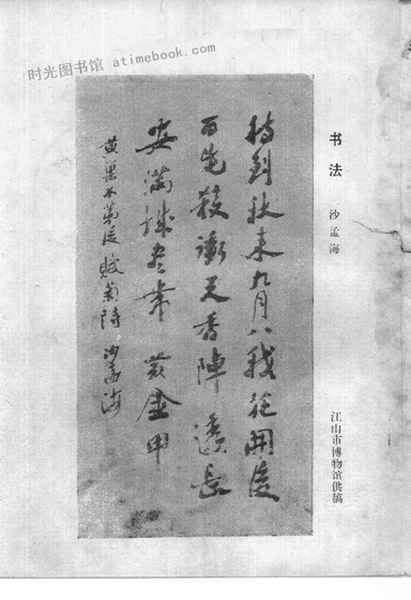 时光图书馆 atimebook.com
书法 沙孟海
江山市博物馆供稿
待到秋来九月八我花開後
百花殺衝天香陣透長
安滿城尽帶黄金甲
黄巢不第後賦菊詩 沙孟海